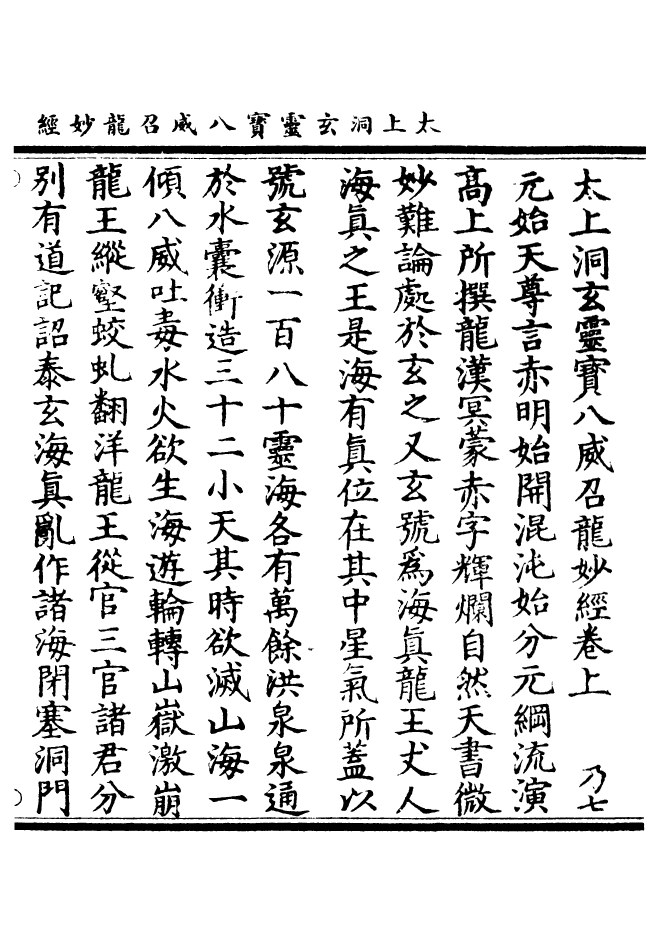 太上洞玄靈寶八威召龍妙經
太上洞玄靈寶八威召龍妙經卷上　乃七
元始天尊言赤明始開混沌始分元綱流演
高上所撰龍漢冥蒙赤字輝爛自然天書微
妙難論處於玄之又玄號爲海眞龍王丈人
海眞之王是海有眞位在其中星氣所蓋以
號玄源一百八十靈海各有萬餘洪泉泉通
於水囊衝造三十二小天其時欲滅山海一
傾八威吐毒水火欲生海遊輪轉山嶽激崩
龍王縱壑蛟虬翻洋龍王從官三官諸君分
别有道記詔泰玄海眞亂作諸海閉塞洞門